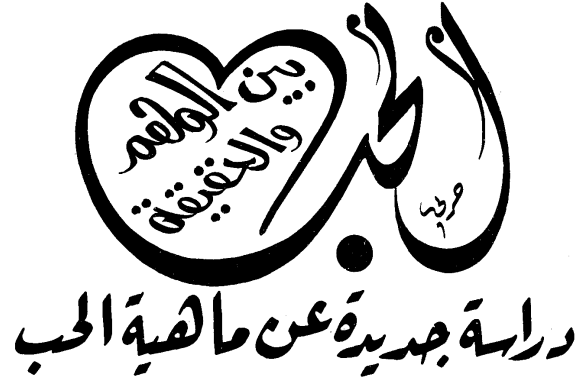 الحب
بين الوهم
والحقيقة
دراسة جديدة عن ماهية الحب